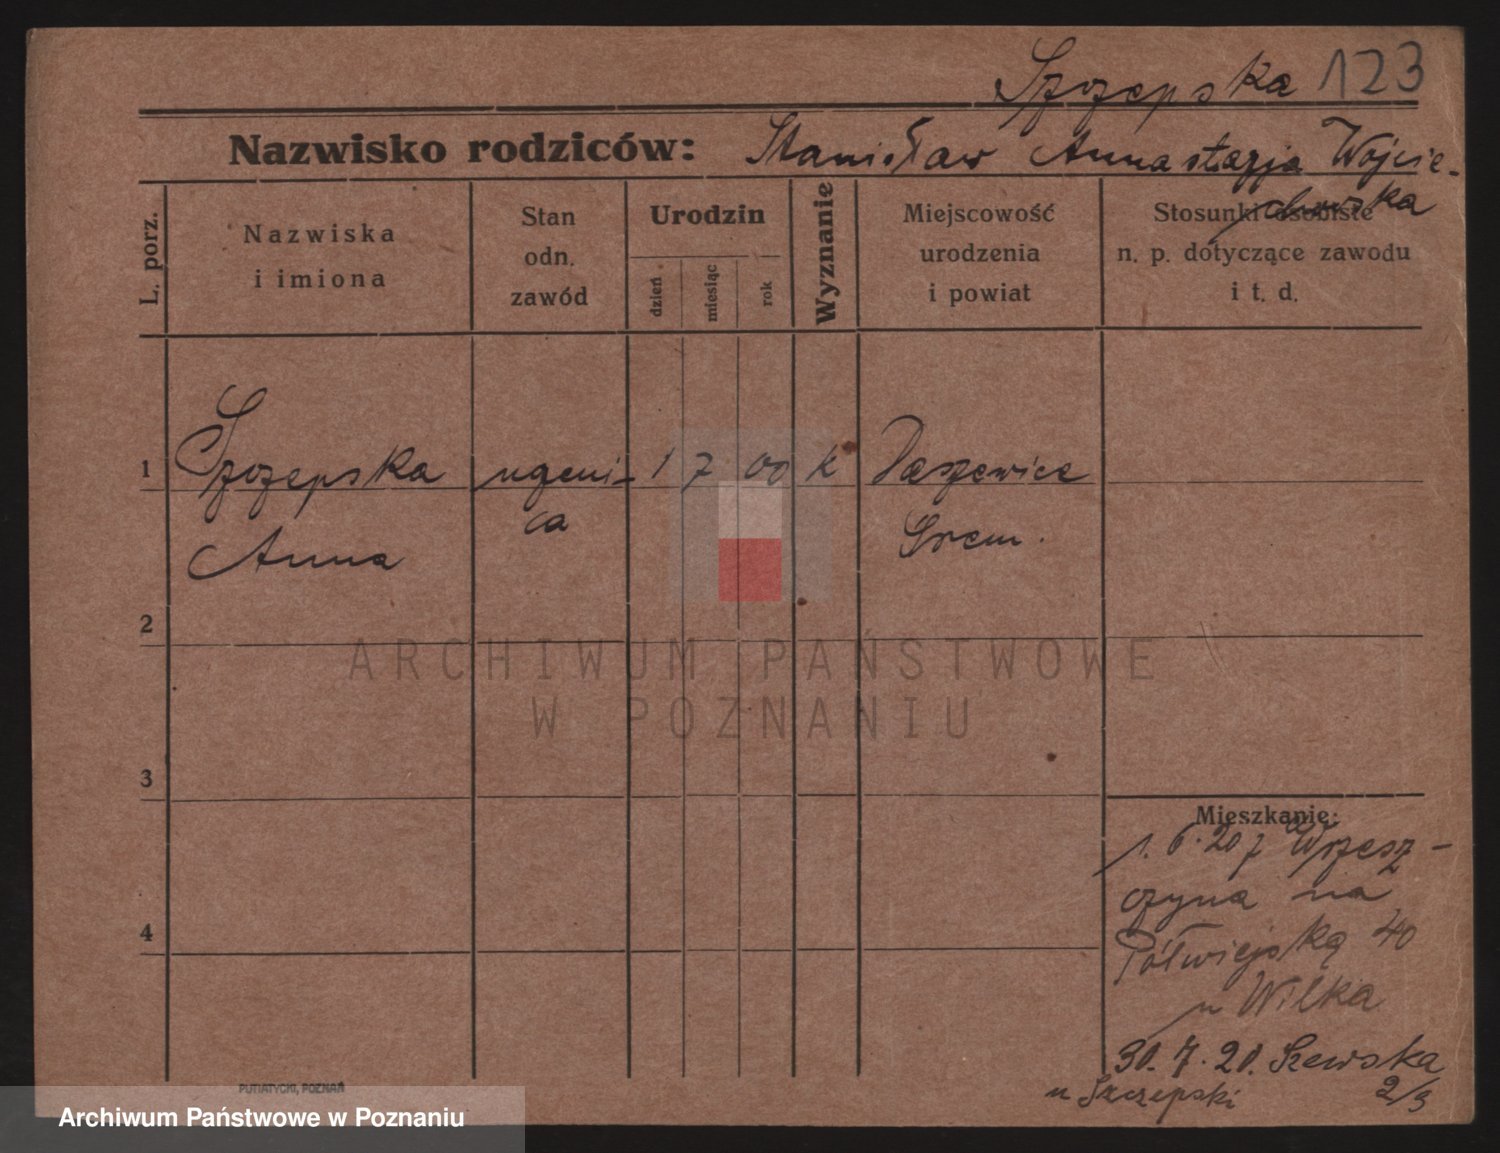 Szczepska 123
Nazwisko rodziców: Stanisław Annastazja Wojcie-
chowska
L. porz.
Nazwiska
i imiona
Stan
odn.
zawód
Urodzin
dzień
miesiąc
rok
Wyznanie
Miejscowość
urodzenia
i powiat
Stosunki osobiste
n. p. dotyczące zawodu
i t. d.
1 Szczepska uczeni- 1 7 00 k Daszewice
ca
Anna
Srem.
2
ARCHIWUM PAŃSTWOWE
W POZNANIU
3
Mieszkanie:
1. 6. 20 z Wrzesz-
czyna na
Półwiejską 40
4
u Wilka
30. 7. 20. Szewska
2/3
u Szczepski
PUTIATYCKI, POZNAŃ
Archiwum Państwowe w Poznaniu